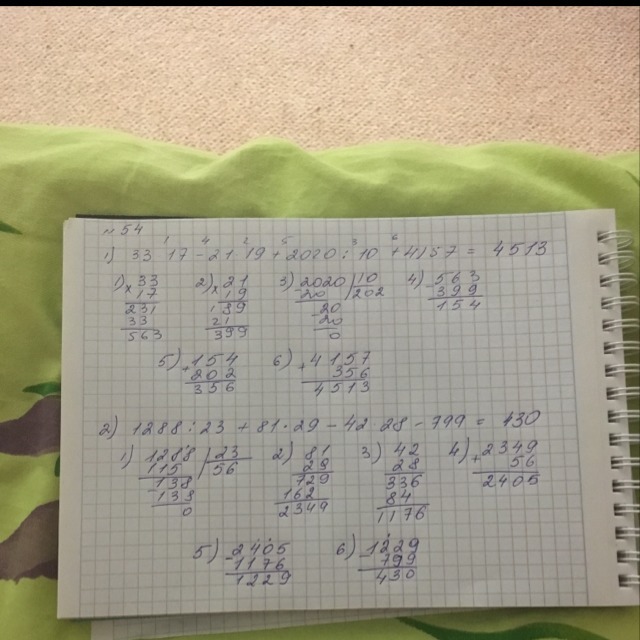 № 54
1 4 2 5 3 6
1) 33 · 17 - 21 · 19 + 2020 : 10 + 4157 = 4513
1) 33 2) 21 3) 2020 | 10 4) 563
× 17 × 19 20 | 202 - 399
231 189 20 154
33 21 20
563 399 0
5) 154 6) 4157
+ 202 + 356
356 4513
2) 1288 : 23 + 81 · 29 - 42 · 28 - 799 = 430
1) 1288 | 23 2) 81 3) 42 4) 2349
115 | 56 29 28 + 56
138 729 336 2405
138 162 84
0 2349 1176
5) 2405 6) 1229
1176 799
1229 430